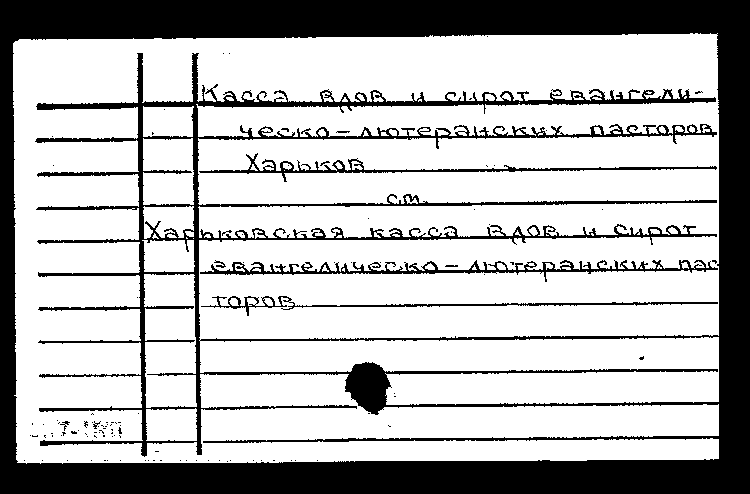 Касса вдов и сирот евангели-
ческо-лютеранских пасторов
Харьков
см.
Харьковская касса вдов и сирот
евангелическо-лютеранских пас
торов